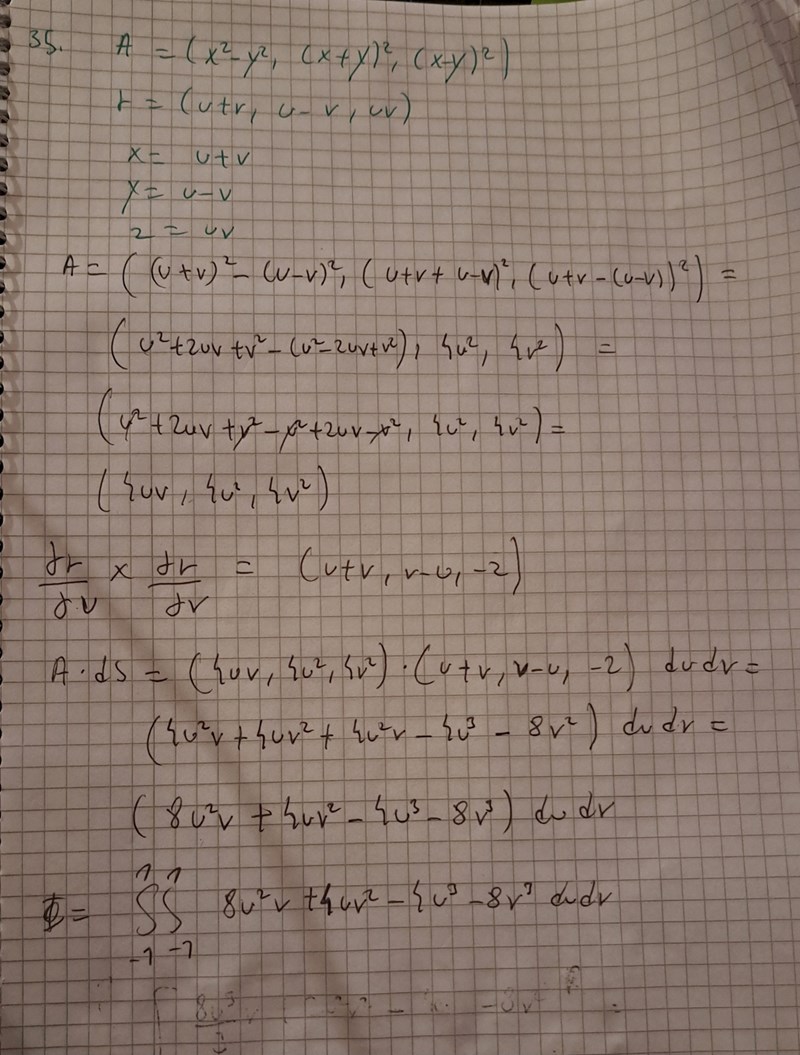 35. A = (x²-y², (x+y)², (x-y)²)
r = (u+v, u-v, uv)
x = u+v
y = u-v
z = uv
A = ((u+v)² - (u-v)², (u+v+u-v)², (u+v-(u-v))²) =
(u²+2uv+v²-(u²-2uv+v²), 4u², 4v²) =
(u²+2uv+v²-u²+2uv-v², 4u², 4v²) =
(4uv, 4u², 4v²)
∂r/∂u × ∂r/∂v = (u+v, v-u, -2)
A · dS = (4uv, 4u², 4v²) · (u+v, v-u, -2) du dv =
(4u²v + 4uv² + 4u²v - 4u³ - 8v²) du dv =
(8u²v + 4uv² - 4u³ - 8v³) du dv
Φ = ∫₋₁¹ ∫₋₁¹ 8u²v + 4uv² - 4u³ - 8v³ du dv